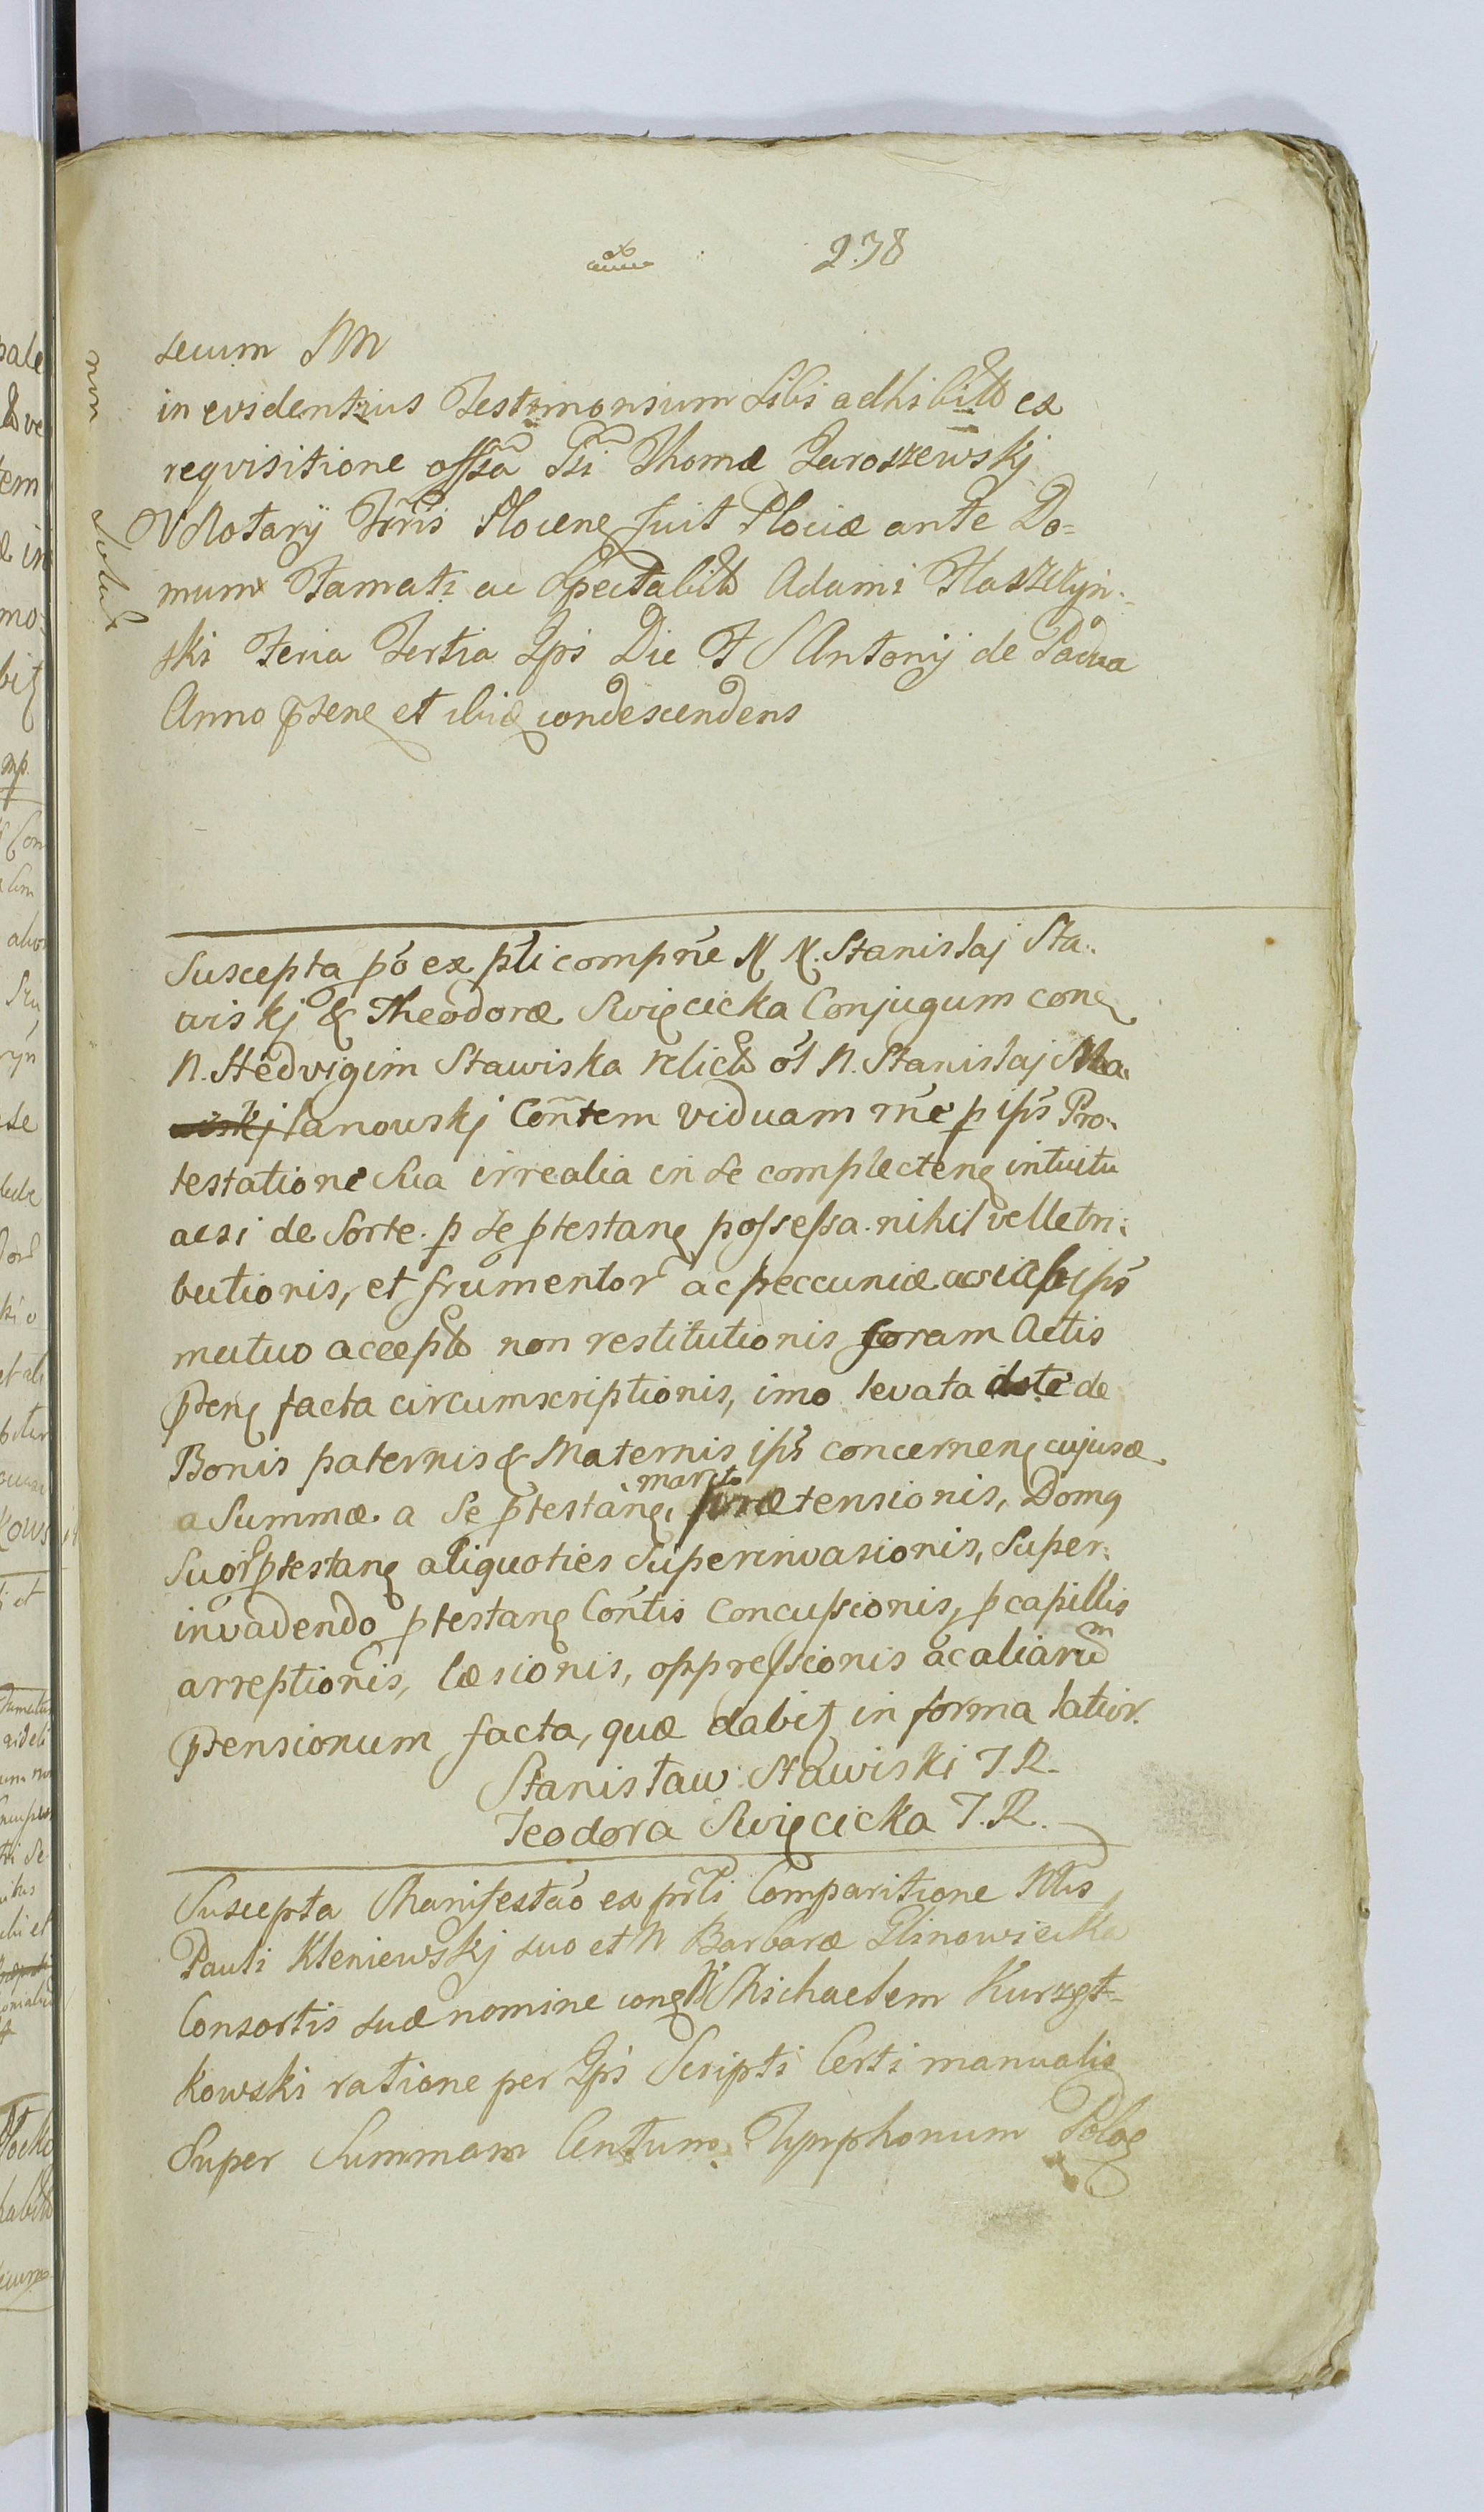 238
secum NN
in evidentius Testimonium sibi adhibitt ex
reqvisitione offsa Gsi Thomæ Jaroszewskj
V Notarÿ Trris Plocens fuit Plociæ ante Do-
mum Famati ac Spectabilt Adami Flaszczyn-
ski Feria Tertia Ipsi Die F S Antonij de Padua
Anno psens et ibiq condescendens
Suscepta po ex pli compne N N. Stanislaj Sta-
wiskj & Theodoræ Swięcicka Conjugum con
N. Hedvigim Stawiska relict ol N. Stanislaj Ma-
wiskj lanouskj Contem viduam rne p ips Pro-
testatione sua irrealia in se complecten intuitu
acsi de Sorte p se ptestan possessa nihil velle tri-
butionis, et frumentor ac peccuniæ acsi ab ips
mutuo accept non restitutionis coram Actis
pten facta circumscriptionis, imo levata dote de
Bonis paternis & Maternis ips concernen cujusæ
a Summæ a se ptestan marito prætensionis, Domq
Suor ptestan aliquoties Superinvasionis, Super-
invadendo ptestan Contis Concussionis, p capillis
arreptionis, læsionis, oppressionis ac aliarum
ptensionum facta, quæ dabit in forma latior.
Stanisław Stawiski T. R.
Teodora Swięcicka T. R.
Suscepta Manifestao ex prli Comparitione Nlis
Pauli Kleniewskj suo et N Barbaræ Glinowiecka
Consortis suæ nomine con N Michaelem Kurzgt-
kowski ratione per Ipsi Scripti Certi manualis
Super Summam Centum Tymphonum Polo